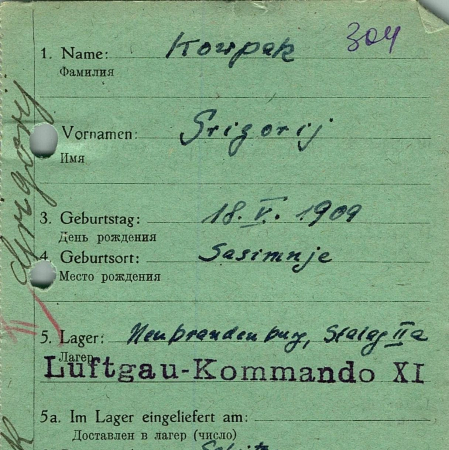 304
1. Name: Kowpak
Фамилия
2. Vornamen: Grigorij
Имя
3. Geburtstag: 18. V. 1909
День рождения
4. Geburtsort: Sasimnje
Место рождения
5. Lager: Neubrandenburg, Stalag IIa
Лагерь
Luftgau-Kommando XI
5a. Im Lager eingeliefert am:
Доставлен в лагерь (число)
Grigorij
II